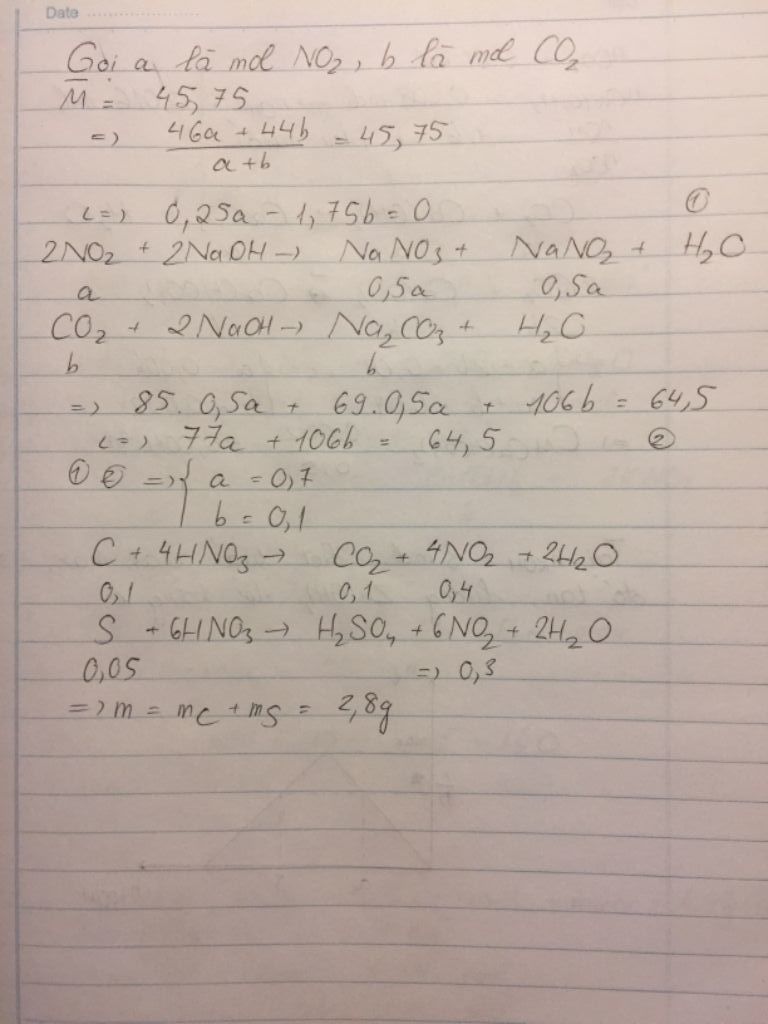 Date
Gọi a là mol NO₂, b là mol CO₂
M̅ = 45,75
=> (46a + 44b)/(a+b) = 45,75
<=> 0,25a - 1,75b = 0 ①
2NO₂ + 2NaOH → NaNO₃ + NaNO₂ + H₂O
a 0,5a 0,5a
CO₂ + 2NaOH → Na₂CO₃ + H₂O
b b
=> 85. 0,5a + 69.0,5a + 106b = 64,5
<=> 77a + 106b = 64,5 ②
① ② => { a = 0,7
b = 0,1
C + 4HNO₃ → CO₂ + 4NO₂ + 2H₂O
0,1 0,1 0,4
S + 6HNO₃ → H₂SO₄ + 6NO₂ + 2H₂O
0,05 => 0,3
=> m = mC + mS = 2,8g